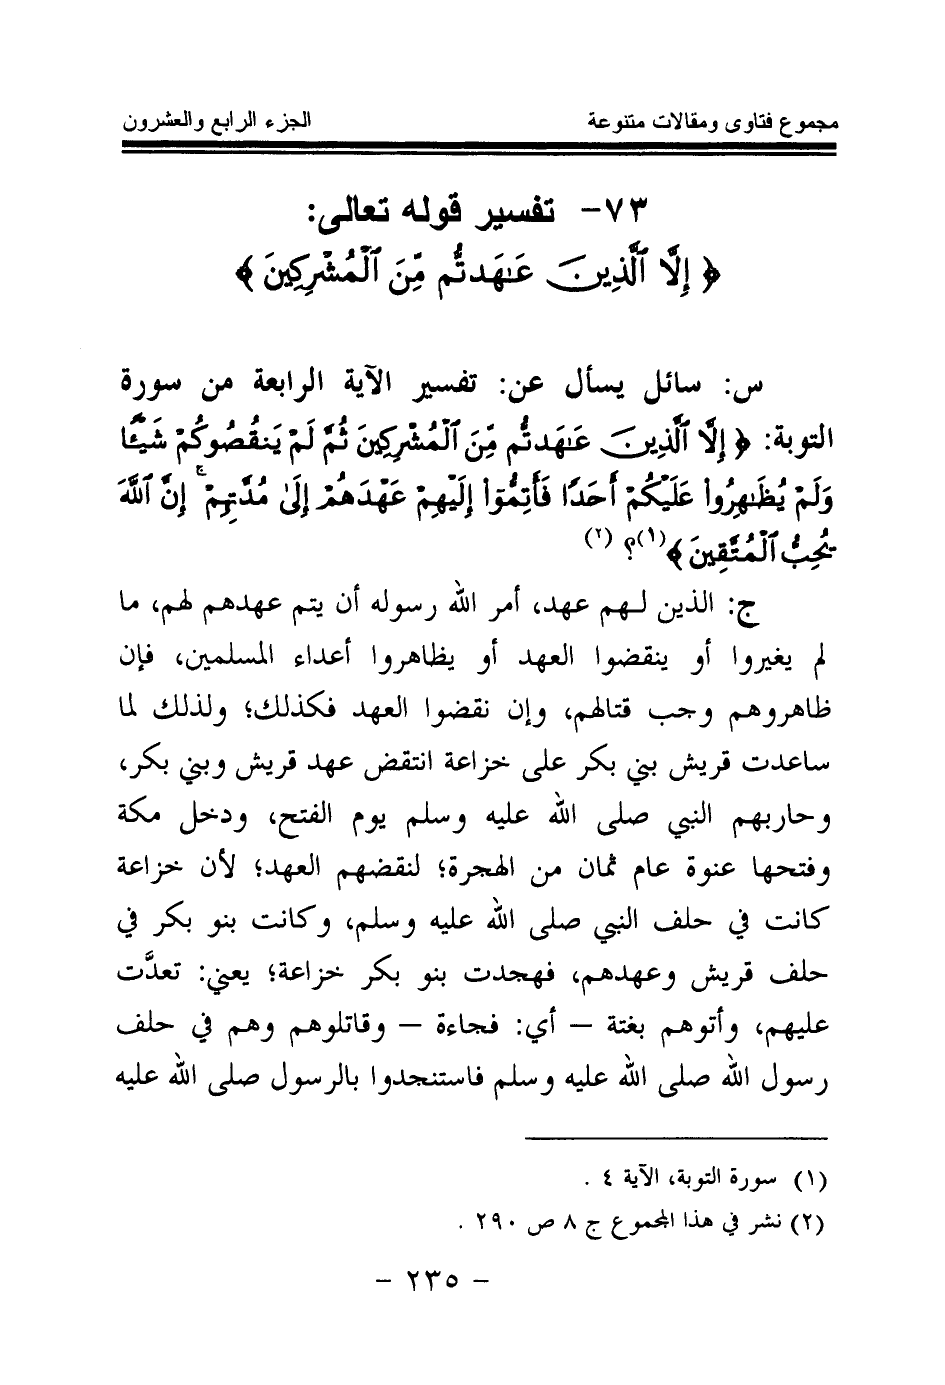 مجموع فتاوى ومقالات متنوعة الجزء الرابع والعشرون
٧٣- تفسير قوله تعالى:
﴿ إِلَّا ٱلَّذِينَ عَـٰهَدتُّم مِّنَ ٱلْمُشْرِكِينَ ﴾
س: سائل يسأل عن: تفسير الآية الرابعة من سورة
التوبة: ﴿ إِلَّا ٱلَّذِينَ عَـٰهَدتُّم مِّنَ ٱلْمُشْرِكِينَ ثُمَّ لَمْ يَنقُصُوكُمْ شَيْـًٔا
وَلَمْ يُظَـٰهِرُوا۟ عَلَيْكُمْ أَحَدًا فَأَتِمُّوٓا۟ إِلَيْهِمْ عَهْدَهُمْ إِلَىٰ مُدَّتِهِمْ ۚ إِنَّ ٱللَّهَ
يُحِبُّ ٱلْمُتَّقِينَ ﴾(١)؟ (٢)
ج: الذين لـهم عهد، أمر الله رسوله أن يتم عهدهم لهم، ما
لم يغيروا أو ينقضوا العهد أو يظاهروا أعداء المسلمين، فإن
ظاهروهم وجب قتالهم، وإن نقضوا العهد فكذلك؛ ولذلك لما
ساعدت قريش بني بكر على خزاعة انتقض عهد قريش وبني بكر،
وحاربهم النبي صلى الله عليه وسلم يوم الفتح، ودخل مكة
وفتحها عنوة عام ثمان من الهجرة؛ لنقضهم العهد؛ لأن خزاعة
كانت في حلف النبي صلى الله عليه وسلم، وكانت بنو بكر في
حلف قريش وعهدهم، فهجدت بنو بكر خزاعة؛ يعني: تعدَّت
عليهم، وأتوهم بغتة – أي: فجاءة – وقاتلوهم وهم في حلف
رسول الله صلى الله عليه وسلم فاستنجدوا بالرسول صلى الله عليه
(١) سورة التوبة، الآية ٤ .
(٢) نشر في هذا المجموع ج ٨ ص ٢٩٠ .
- ٢٣٥ -